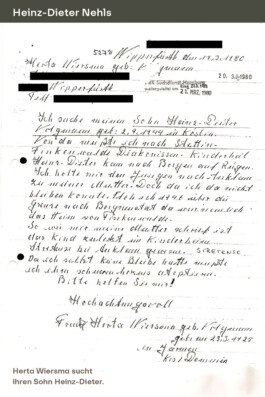 Heinz-Dieter Nehls
5272 Wipperfürth den 17.3.1980
Herta Wiersma geb. Volgmann
20. 3. 1980
Wipperfürth
Ich suche meinen Sohn Heinz-Dieter
Volgmann geb. 2.9.1944 in Köslin.
Von da mußte ich nach Stettin-
Finkenwalde Diakonissen-Kinderheil
Heinz-Dieter kam nach Bergen auf Rügen.
Ich holte mir den Jungen nach Anklam
zu meiner Mutter. Doch da ich da nicht
bleiben konnte. Ich 1948 über die
Grenze nach
das Heim von Finkenwalde.
So wie mir meine Mutter schrieb ist
das Kind zuletzt im Kinderheim
bei Anklam gewesen. SIRETENSE.
Da ich selbst keine Bleibe hatte mußte
ich schon adoptieren.
Bitte helfen Sie mir!
Hochachtungsvoll
Frau Herta Wiersma geb. Volgmann
geb. am 22.3.1925
in Jarmen
Krs. Demmin
Herta Wiersma sucht
ihren Sohn Heinz-Dieter.